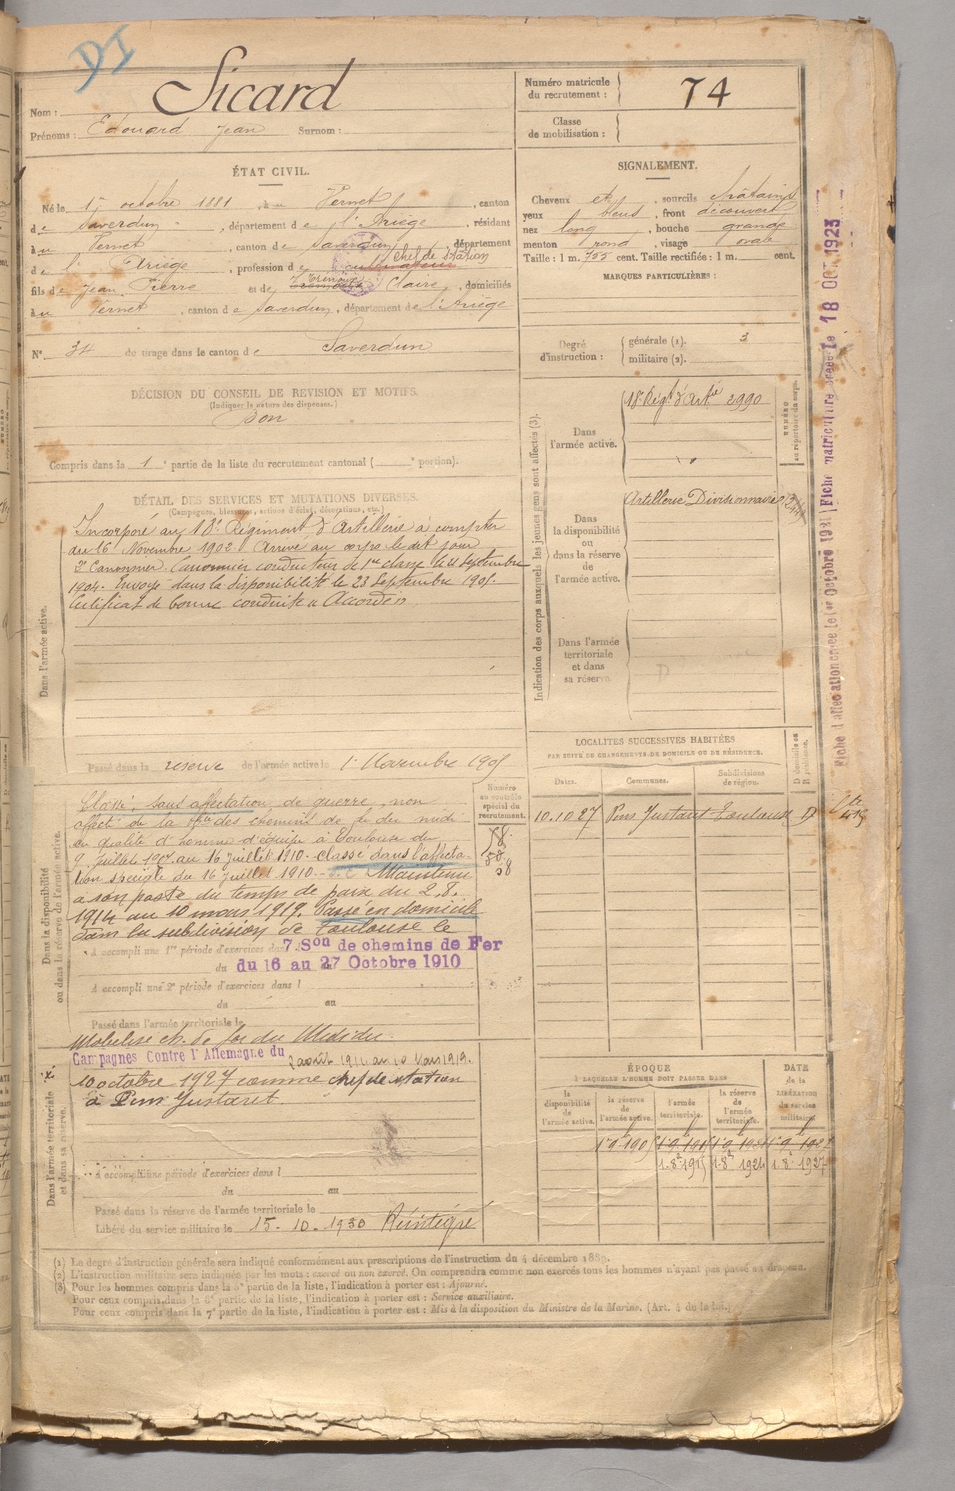 DI
Nom : Sicard
Prénoms : Edouard Jean Surnom :
Numéro matricule du recrutement : 74
Classe de mobilisation :
ÉTAT CIVIL.
Né le 1er octobre 1881, à u Vernet, canton
de Saverdun, département de l'Ariège, résidant
à u Vernet, canton de Saverdun, département
de l'Ariège, profession de cultivateur chef de station
fils de Jean Pierre et de Claire, domiciliés
à u Vernet, canton de Saverdun, département de l'Ariège
N° 34 de tirage dans le canton de Saverdun
SIGNALEMENT.
Cheveux et, sourcils châtains
yeux bleus, front découvert
nez long, bouche grande
menton rond, visage ovale
Taille : 1 m. 705 cent. Taille rectifiée : 1 m. cent.
MARQUES PARTICULIÈRES :
Degré d'instruction : générale (1). 3
militaire (2).
DÉCISION DU CONSEIL DE REVISION ET MOTIFS.
(Indiquer la nature des dispenses.)
Bon
Compris dans la 1e partie de la liste du recrutement cantonal ( portion).
DÉTAIL DES SERVICES ET MUTATIONS DIVERSES.
(Campagnes, blessures, actions d'éclat, décorations, etc.)
Dans l'armée active.
Incorporé au 18e Régiment d'Artillerie à compter
du 16 Novembre 1902. Arrivé au corps le dit jour
2e Canonnier. Canonnier conducteur de 1re classe le 21 septembre
1904. Envoyé dans la disponibilité le 23 Septembre 1905.
Certificat de bonne conduite "Accordé".
Passé dans la réserve de l'armée active le 1er Novembre 1905
Indication des corps auxquels les jeunes gens sont affectés (3).
NUMÉRO au répertoire du corps.
Dans l'armée active.
18 Régt d'Artie 2990
Dans la disponibilité ou dans la réserve de l'armée active.
Artillerie Divisionnaire
Dans l'armée territoriale et dans sa réserve
Fiche d'affectation créée le 1er Octobre 1921 Fiche matriculaire créée le 18 OCT 1923
Dans la disponibilité ou dans la réserve de l'armée active.
Classé, sans affectation de guerre, non
affecté de la Cie des chemins de fer du midi
en qualité d'homme d'équipe à Toulouse du
9 juillet 1907 au 16 juillet 1910. classé dans l'affecta-
tion spéciale du 16 juillet 1910. Maintenu
à son poste du temps de paix du 2.8.
1914 au 10 mars 1919. Passé en domicile
dans la subdivision de Toulouse le
A accompli une 1re période d'exercices dans 7. Son de chemins de Fer
du 16 au 27 Octobre 1910
A accompli une 2e période d'exercices dans l
du au
Passé dans l'armée territoriale le
Numéro au contrôle spécial du recrutement.
58
LOCALITÉS SUCCESSIVES HABITÉES
PAR SUITE DE CHANGEMENTS DE DOMICILE OU DE RÉSIDENCE.
Dates. Communes. Subdivisions de région. D domicile ou R résidence.
10.10 27 Pins Justaret Toulouse D
Dans l'armée territoriale et dans sa réserve.
Mobilisé ch. de fer du Midi du
Campagnes Contre l'Allemagne du 2 août 1914 au 10 Mars 1919.
10 octobre 1927 comme chef de station
à Pins Justaret.
A accompli une période d'exercices dans l
du au
Passé dans la réserve de l'armée territoriale le
Libéré du service militaire le 15. 10. 1930 Réintégré
ÉPOQUE
À LAQUELLE L'HOMME DOIT PASSER DANS
DATE de la LIBÉRATION du service militaire.
la disponibilité de l'armée active. la réserve de l'armée active. l'armée territoriale. la réserve de l'armée territoriale.
1 9 1905 1 9 1915 1 9 1921 1 9 1927
1.8bre 1915 1.8bre 1921 1.8bre 1927
(1) Le degré d'instruction générale sera indiqué conformément aux prescriptions de l'instruction du 4 décembre 1889.
(2) L'instruction militaire sera indiquée par les mots : exercé ou non exercé. On comprendra comme non exercés tous les hommes n'ayant pas passé au drapeau.
(3) Pour les hommes compris dans la 5e partie de la liste, l'indication à porter est : Ajourné.
Pour ceux compris dans la 6e partie de la liste, l'indication à porter est : Service auxiliaire.
Pour ceux compris dans la 7e partie de la liste, l'indication à porter est : Mis à la disposition du Ministre de la Marine. (Art. 4 de la loi.)